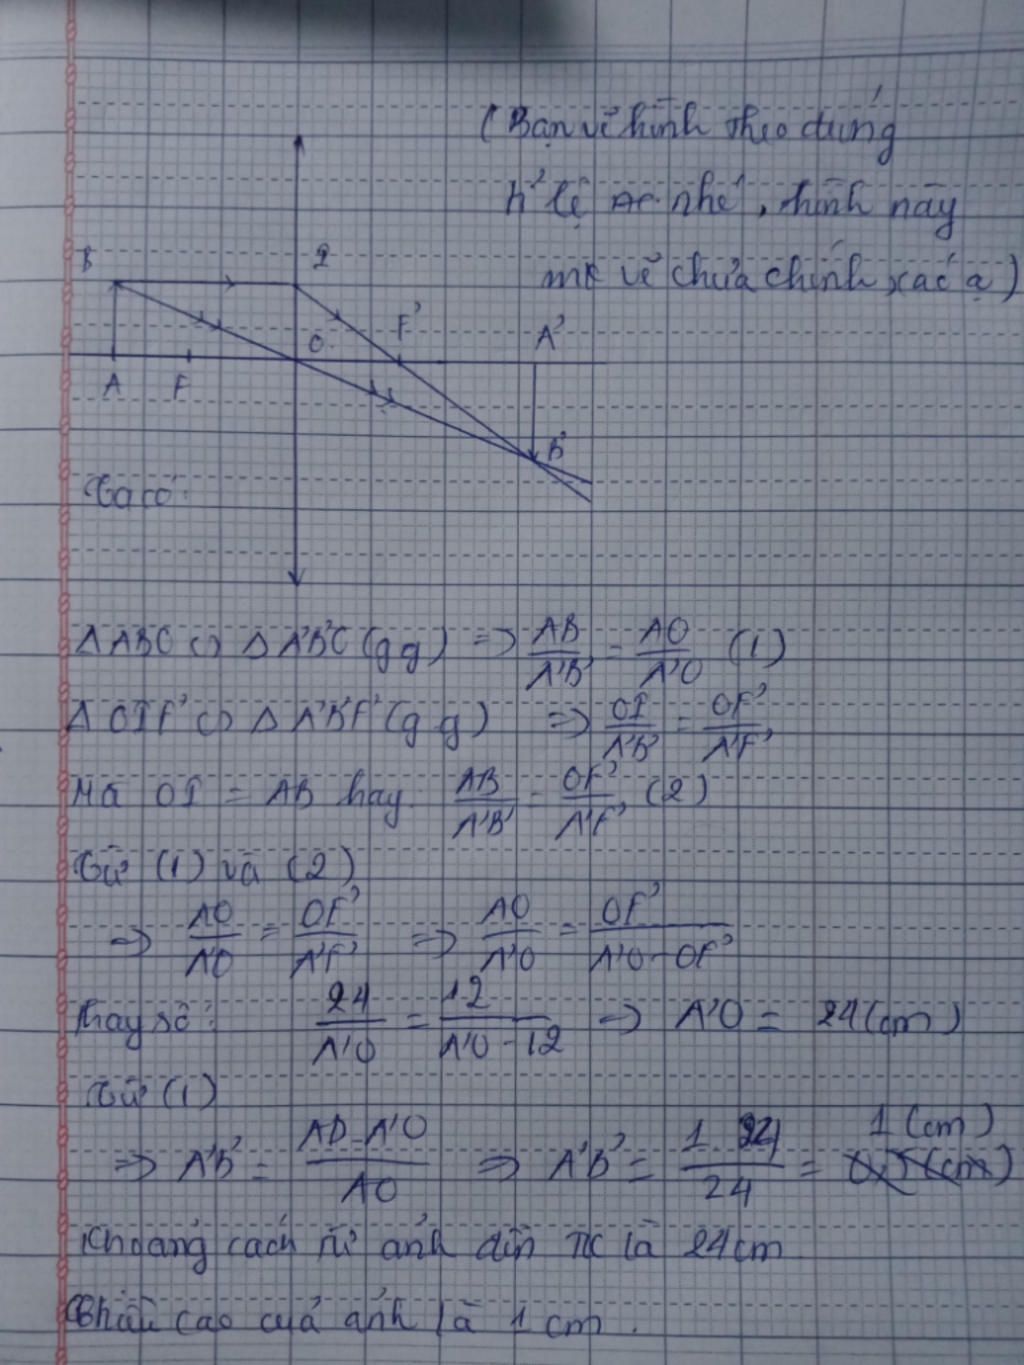 (Bạn vẽ hình theo đúng
tỉ lệ nhé, hình này
mk vẽ chưa chính xác ạ)
B I
O F' A'
A F
B'
Ta có:
Δ ABO ∽ Δ A'B'O (g.g) => AB/A'B' = AO/A'O (1)
Δ OIF' ∽ Δ A'B'F' (g.g) => OI/A'B' = OF'/A'F'
Mà OI = AB hay AB/A'B' = OF'/A'F' (2)
Từ (1) và (2)
=> AO/A'O = OF'/A'F' => AO/A'O = OF'/A'O - OF'
Thay số: 24/A'O = 12/A'O - 12 => A'O = 24 (cm)
Từ (1)
=> A'B' = AB.A'O/AO => A'B' = 1.24/24 = 1 (cm)
Khoảng cách từ ảnh đến TK là 24cm
Chiều cao của ảnh là 1 cm.